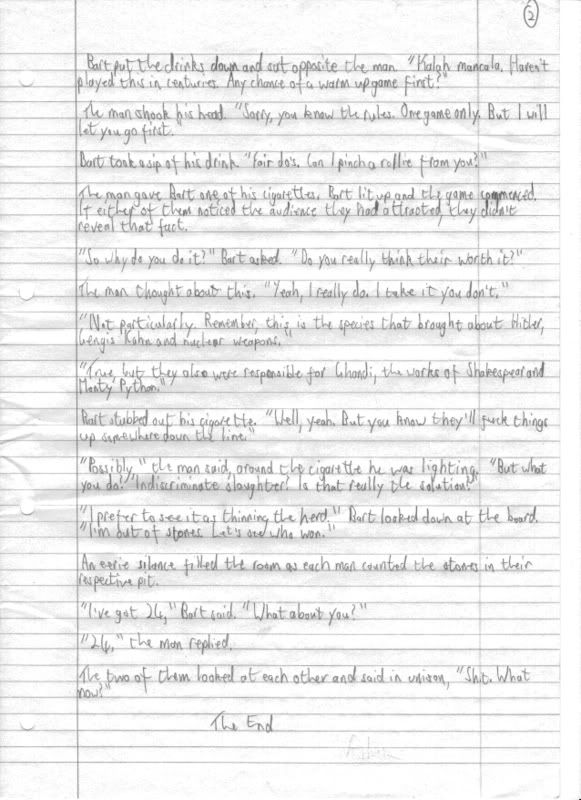 2
Bart put the drinks down and sat opposite the man. "Kalah mancala. Haven't
played this in centuries. Any chance of a warm up game first?"
The man shook his head. "Sorry, you know the rules. One game only. But I will
let you go first."
Bart took a sip of his drink. "Fair do's. Can I pinch a rollie from you?"
The man gave Bart one of his cigarettes. Bart lit up and the game commenced.
If either of them noticed the audience they had attracted, they didn't
reveal that fact.
"So why do you do it?" Bart asked. "Do you really think their worth it?"
The man thought about this. "Yeah, I really do. I take it you don't."
"Not particularly. Remember, this is the species that brought about Hitler,
Gengis Kahn and nuclear weapons."
"True, but they also were responsible for Ghandi, the works of Shakespear and
Monty Python."
Bart stubbed out his cigarette. "Well, yeah. But you know they'll fuck things
up somewhere down the line."
"Possibly" the man said, around the cigarette he was lighting. "But what
you do? Indiscriminate slaughter? Is that really the solution?"
"I prefer to see it as thinning the herd." Bart looked down at the board.
"I'm out of stones. Let's see who won."
An eerie silence filled the room as each man counted the stones in their
respective pit.
"I've got 24," Bart said. "What about you?"
"24," the man replied.
The two of them looked at each other and said in unison, "Shit. What
now?"
The End